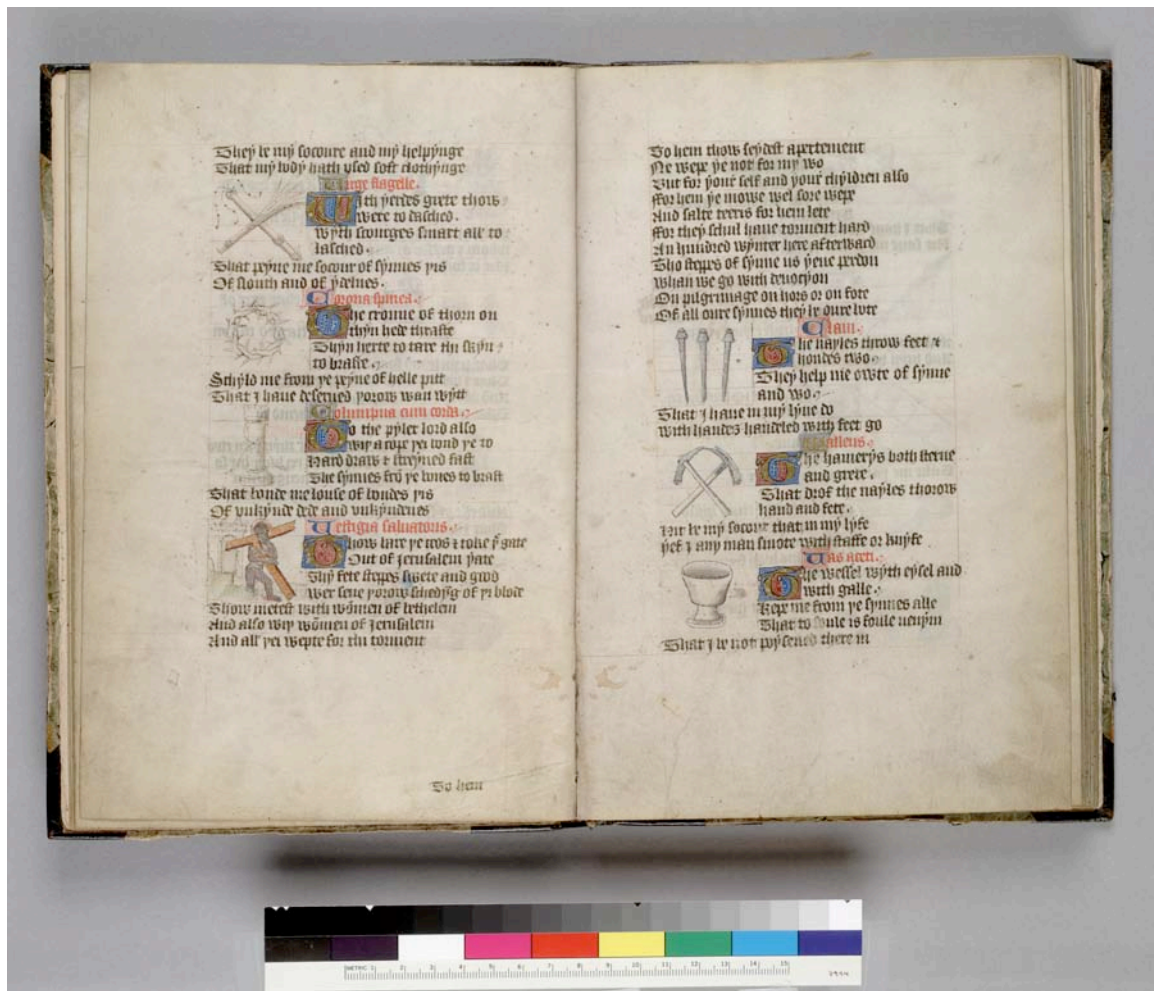 They be my socoure and my helpynge
That my body hath used soft clothynge
Virge flagelle.
With yerdes grete thow
were to dasched.
Wyth scourges smart all to
lasched.
That peyne me socour of synnes yis
Of slouth and of ydelnes.
Corona spinea.
The croune of thorn on
thyn hede thraste
Thyn herte to tare thi skyn
to braste.
Schyld me from ye peyne of helle pitt
That I haue deserued yorow wan wytt
Columpna cum corda.
To the pyler lord also
Wiy a rope yei bond ye to
Hard draw & streyned fast
The synues frō ye bones to brast
That bonde me louse of bondes yis
Of vnkynde dede and vnkyndenes
Vestigia saluatoris.
Thow bare ye cros & toke ye gate
Out of Jerusalem yate
Thy fete steppes swete and good
Wer sene yorow schedyg of yi blode
Thow metest with women of bethelem
And also wiy wōmen of Jerusalem
And all yei wepte for thi torment
To hem
To hem thow seydest apertement
Ne wepe ye not for my wo
But for your self and your chyldren also
ffor hem ye mowe wel sore wepe
And salte teeris for hem lete
ffor they schul haue torment hard
An hundred wynter here afterward
Tho steppes of synne us yeue perdon
Whan we go with deuocyon
On pilgrimage on hors or on fote
Of all oure synnes they be oure bote
Claui.
The nayles throw feet &
hondes two
They help me owte of synne
and wo.
That I haue in my lyue do
With handes handeled with feet go
Malleus.
The hamerys both sterne
and grete.
That drof the nayles thorow
hand and fete.
Hit be my socour that in my lyfe
yef I any man smote with staffe or knyfe
Vas aceti.
The vessel wyth eysel and
with galle.
Kepe me from ye synnes alle
That to soule is foule uenym
That I be not poysened there in
METRIC 1 2 3 4 5 6 7 8 9 10 11 12 13 14 15